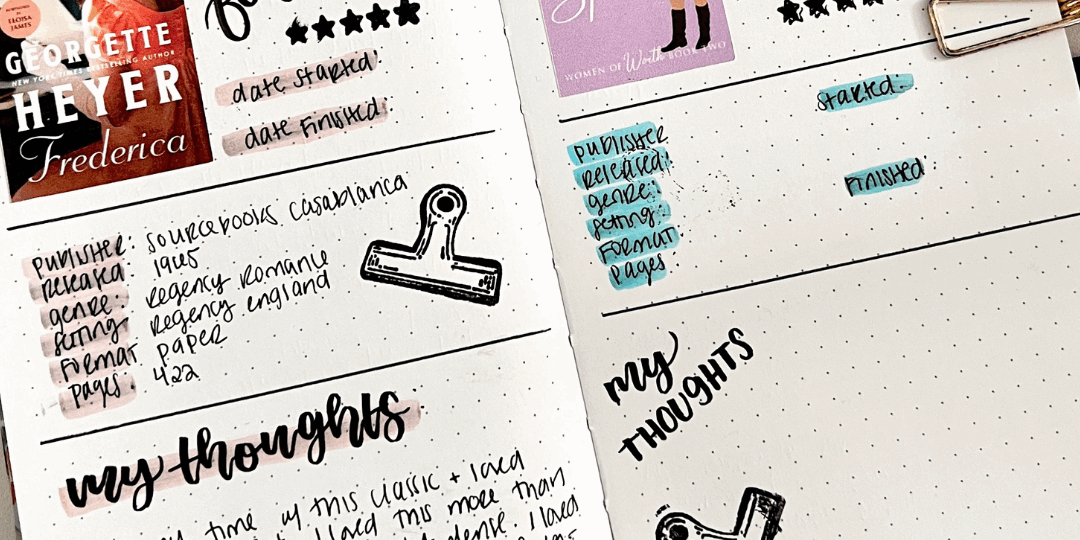 FOREWORD BY
ELOISA
JAMES
GEORGETTE
NEW YORK TIMES BESTSELLING AUTHOR
HEYER
Frederica
date started:
date finished:
publisher: sourcebooks casablanca
released: 1965
genre: regency romance
setting: regency england
format: paper
pages: 422
my thoughts:
time w/ this classic + loved
I loved this more than
dense. I loved
WOMEN OF Worth BOOK TWO
started:
finished:
publisher
released:
genre:
setting:
format
pages
my
THOUGHTS